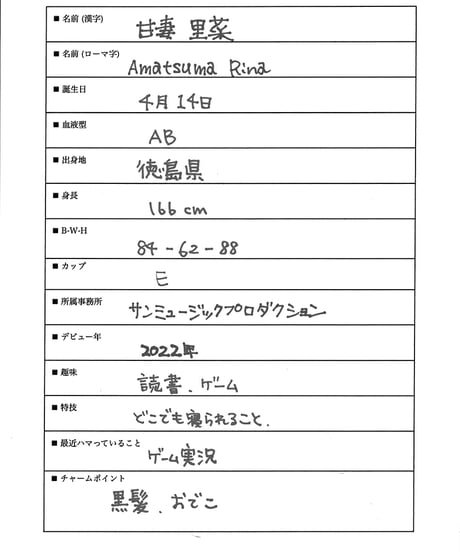 ■ 名前 (漢字)
甘妻 里菜
■ 名前 (ローマ字)
Amatsuma Rina
■ 誕生日
4月14日
■ 血液型
AB
■ 出身地
徳島県
■ 身長
166 cm
■ B-W-H
84 - 62 - 88
■ カップ
E
■ 所属事務所
サンミュージックプロダクション
■ デビュー年
2022年
■ 趣味
読書、ゲーム
■ 特技
どこでも寝られること、
■ 最近ハマっていること
ゲーム実況
■ チャームポイント
黒髪、おでこ